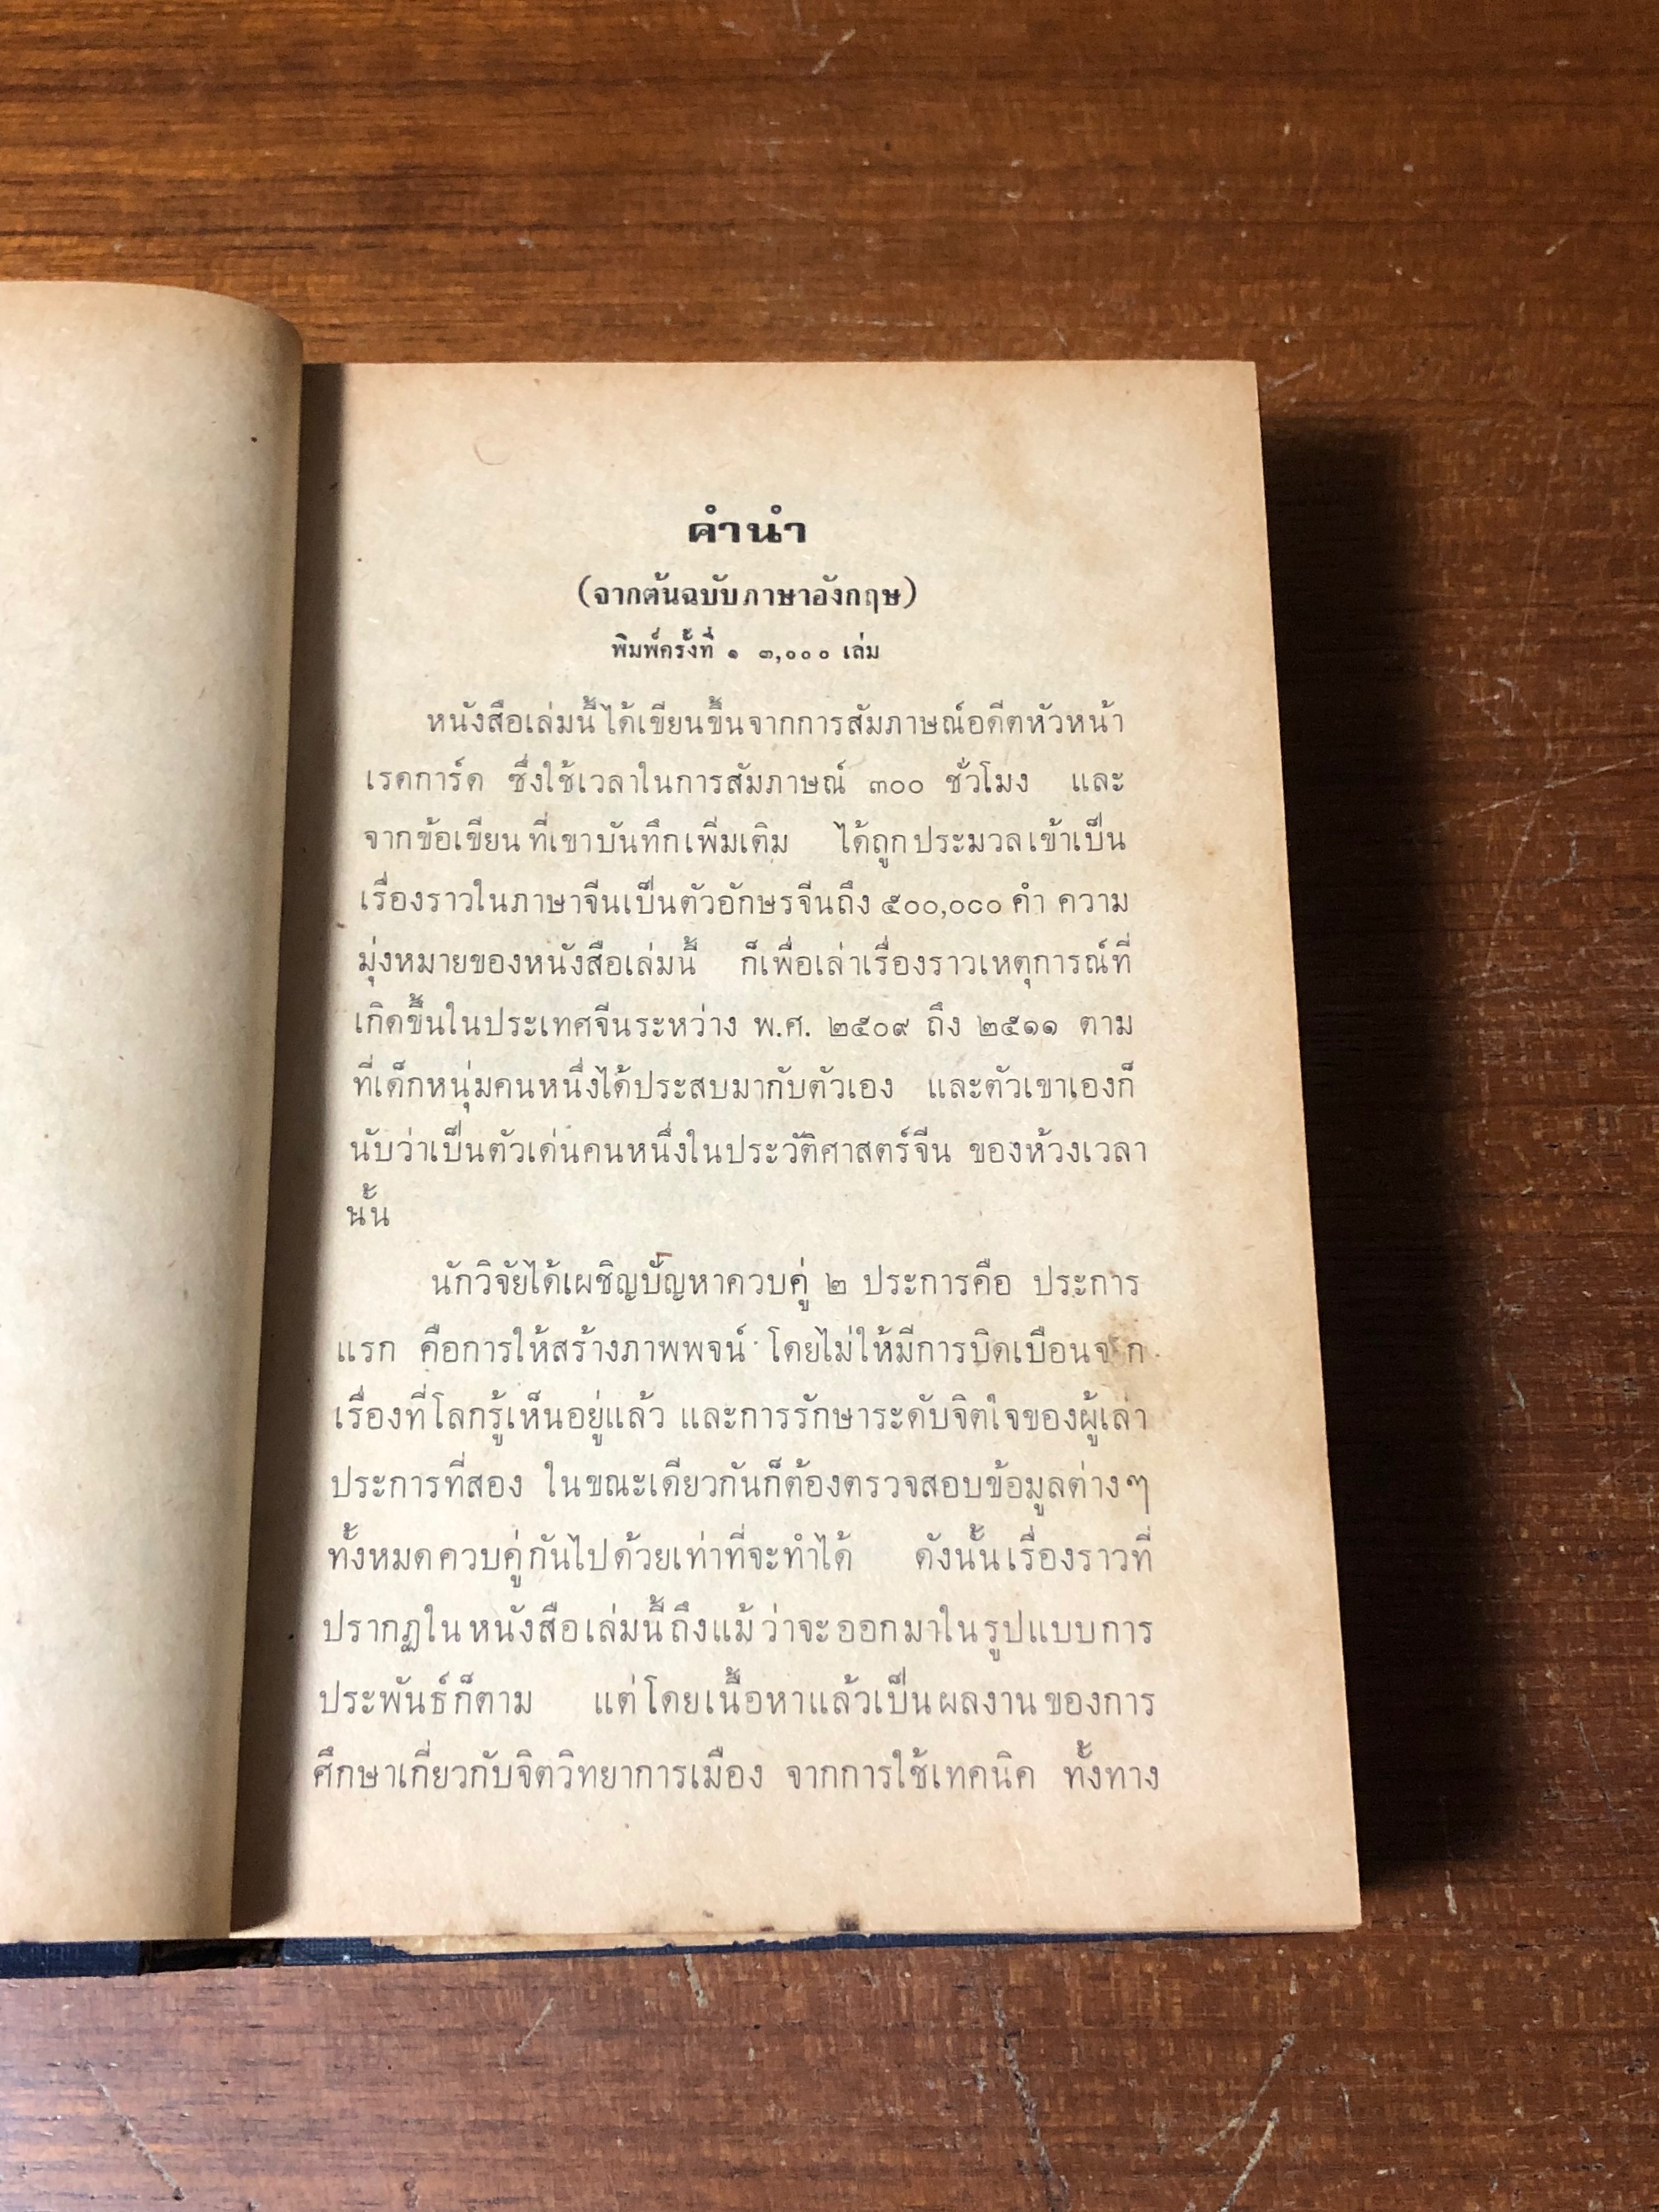 คำนำ
(จากต้นฉบับภาษาอังกฤษ)
พิมพ์ครั้งที่ ๑ ๓,๐๐๐ เล่ม
หนังสือเล่มนี้ได้เขียนขึ้นจากการสัมภาษณ์อดีตหัวหน้า
เรดการ์ด ซึ่งใช้เวลาในการสัมภาษณ์ ๓๐๐ ชั่วโมง และ
จากข้อเขียนที่เขาบันทึกเพิ่มเติม ได้ถูกประมวลเข้าเป็น
เรื่องราวในภาษาจีนเป็นตัวอักษรจีนถึง ๕๐๐,๐๐๐ คำ ความ
มุ่งหมายของหนังสือเล่มนี้ ก็เพื่อเล่าเรื่องราวเหตุการณ์ที่
เกิดขึ้นในประเทศจีนระหว่าง พ.ศ. ๒๕๐๙ ถึง ๒๕๑๑ ตาม
ที่เด็กหนุ่มคนหนึ่งได้ประสบมากับตัวเอง และตัวเขาเองก็
นับว่าเป็นตัวเด่นคนหนึ่งในประวัติศาสตร์จีน ของห้วงเวลา
นั้น
นักวิจัยได้เผชิญปัญหาควบคู่ ๒ ประการคือ ประการ
แรก คือการให้สร้างภาพพจน์ โดยไม่ให้มีการบิดเบือนจาก
เรื่องที่โลกรู้เห็นอยู่แล้ว และการรักษาระดับจิตใจของผู้เล่า
ประการที่สอง ในขณะเดียวกันก็ต้องตรวจสอบข้อมูลต่างๆ
ทั้งหมดควบคู่กันไปด้วยเท่าที่จะทำได้ ดังนั้นเรื่องราวที่
ปรากฏในหนังสือเล่มนี้ถึงแม้ว่าจะออกมาในรูปแบบการ
ประพันธ์ก็ตาม แต่โดยเนื้อหาแล้วเป็นผลงานของการ
ศึกษาเกี่ยวกับจิตวิทยาการเมือง จากการใช้เทคนิค ทั้งทาง